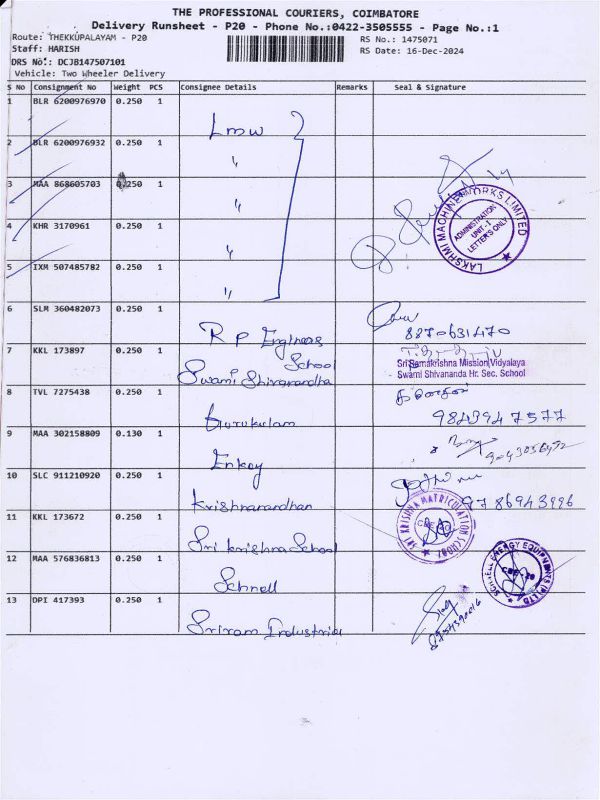 THE PROFESSIONAL COURIERS, COIMBATORE
Delivery Runsheet - P20 - Phone No.:0422-3505555 - Page No.:1
Route: THEKKUPALAYAM - P20
RS No.: 1475071
Staff: HARISH
RS Date: 16-Dec-2024
DRS No.: DCJB147507101
Vehicle: Two Wheeler Delivery
S No Consignment No Weight PCS Consignee Details Remarks Seal & Signature
1 BLR 6200976970 0.250 1 Lmw
2 BLR 6200976932 0.250 1 "
3 MAA 868605703 0.250 1 "
4 KHR 3170961 0.250 1 "
5 IXM 507485782 0.250 1 "
LAKSHMI MACHINE WORKS LIMITED
ADMINISTRATION
UNIT-1
LETTER'S ONLY
6 SLM 360482073 0.250 1 R P Engineers
8870631470
7 KKL 173897 0.250 1 Swami Shivanandha School
Sri Ramakrishna Mission Vidyalaya
Swami Shivananda Hr. Sec. School
8 TVL 7275438 0.250 1 Gurukulam
9843947577
9 MAA 302158809 0.130 1 Enkay
10 SLC 911210920 0.250 1 Krishnavardhan
9786943996
11 KKL 173672 0.250 1 Sri Krishna School
SRI KRISHNA MATRICULATION SCHOOL
12 MAA 576836813 0.250 1 Schnell
SCHNELL ENERGY EQUIPMENTS (P) LTD
CBE-20
13 DPI 417393 0.250 1 Sriram Industries